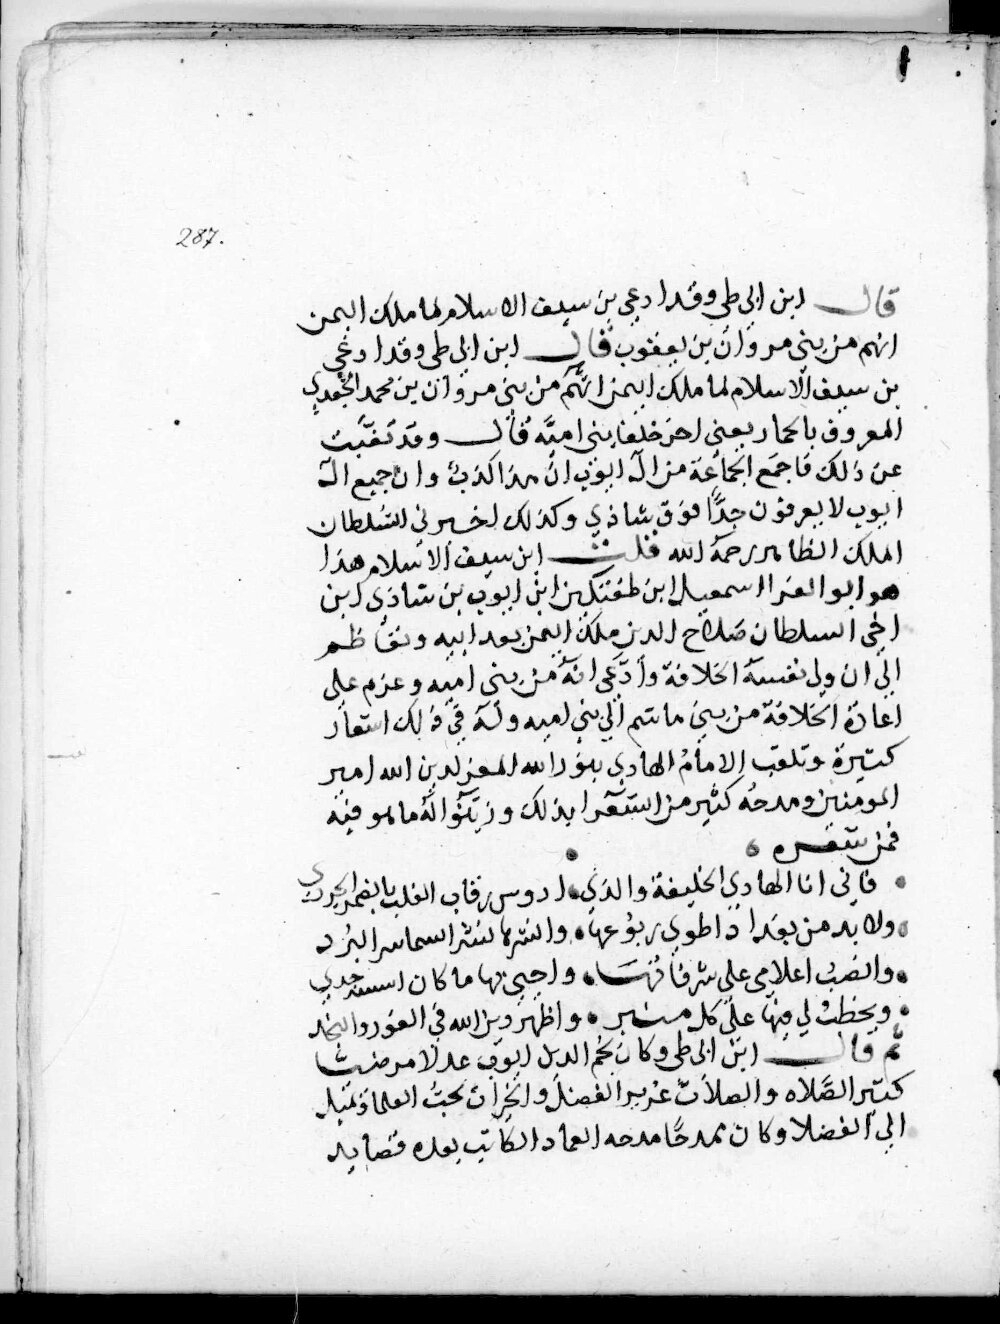 287.
قال ابن ابي طي وقد ادعي بن سيف الاسلام لما ملك اليمن
انهم من بني مروان بن يعقوب قال ابن ابي طي وقد ادعي
بن سيف الاسلام لما ملك اليمن انهم من بني مروان بن محمد الجعدي
المعروف بالحمار يعني اخر خلفا بني اميه قال وقد نقبت
عن ذلك فاجمع الجماعة من ال ايوب ان هذا كذب وان جميع ال
ايوب لا يعرفون جدًّا فوق شاذي وكذلك اخبرني السلطان
الملك الظاهر رحمه الله قلت ابن سيف الاسلام هذا
هو ابو الفدا اسمعيل ابن طغتكين ابن ايوب بن شاذي ابن
اخي السلطان صلاح الدين ملك اليمن بعد ابيه وتعاظم
الي ان ولي نفسه الخلافة وادعي انه من بني اميه وعزم علي
اعادة الخلافة من بني هاشم الي بني اميه وله في ذلك اشعار
كثيرة وتلقب الامام الهادي بنور الله المعز لدين الله امير
المومنين ومدحه كثير من الشعرا بذلك وزينوا له ما هو فيه
فمن شعره
فاني انا الهادي الخليفة والذي ادوس رقاب الغلب بالضمر الجرد
ولا بد من بغداد اطوي ربوعها وانشرها نشر السماسر البرد
وانصب اعلامي علي شرفاتها واحيي بها ما كان اسسه جدي
ويخطب لي فيها علي كل منبر واظهر دين الله في الغور والنجد
ثم قال ابن ابي طي وكان نجم الدين ايوب عدلا مرضيا
كثير الصلاه والصلات غزير الفضل والخيرات يحب العلما ويميل
الي الفضلا وكان ممدحًا مدحه العماد الكاتب بعده قصايد